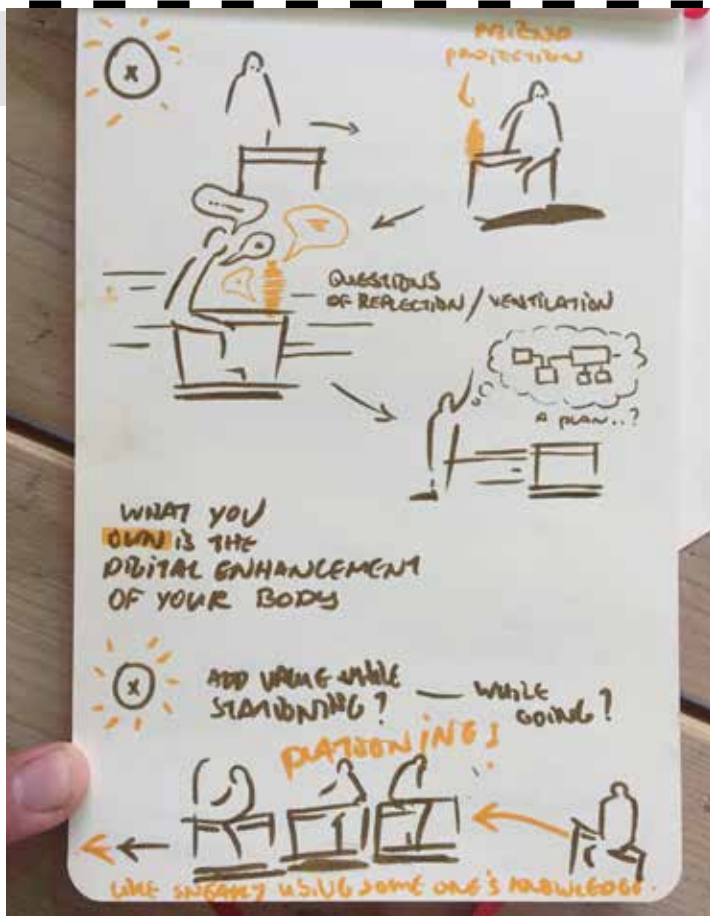 x
FRIEND
PROJECTION
QUESTIONS
OF REFLECTION / VENTILATION
A PLAN..?
WHAT YOU
OWN IS THE
DIGITAL ENHANCEMENT
OF YOUR BODY
x
ADD VALUE WHILE
STATIONING? — WHILE
GOING?
PLATOONING!
LIKE SNEAKY USING SOME ONE'S KNOWLEDGE.